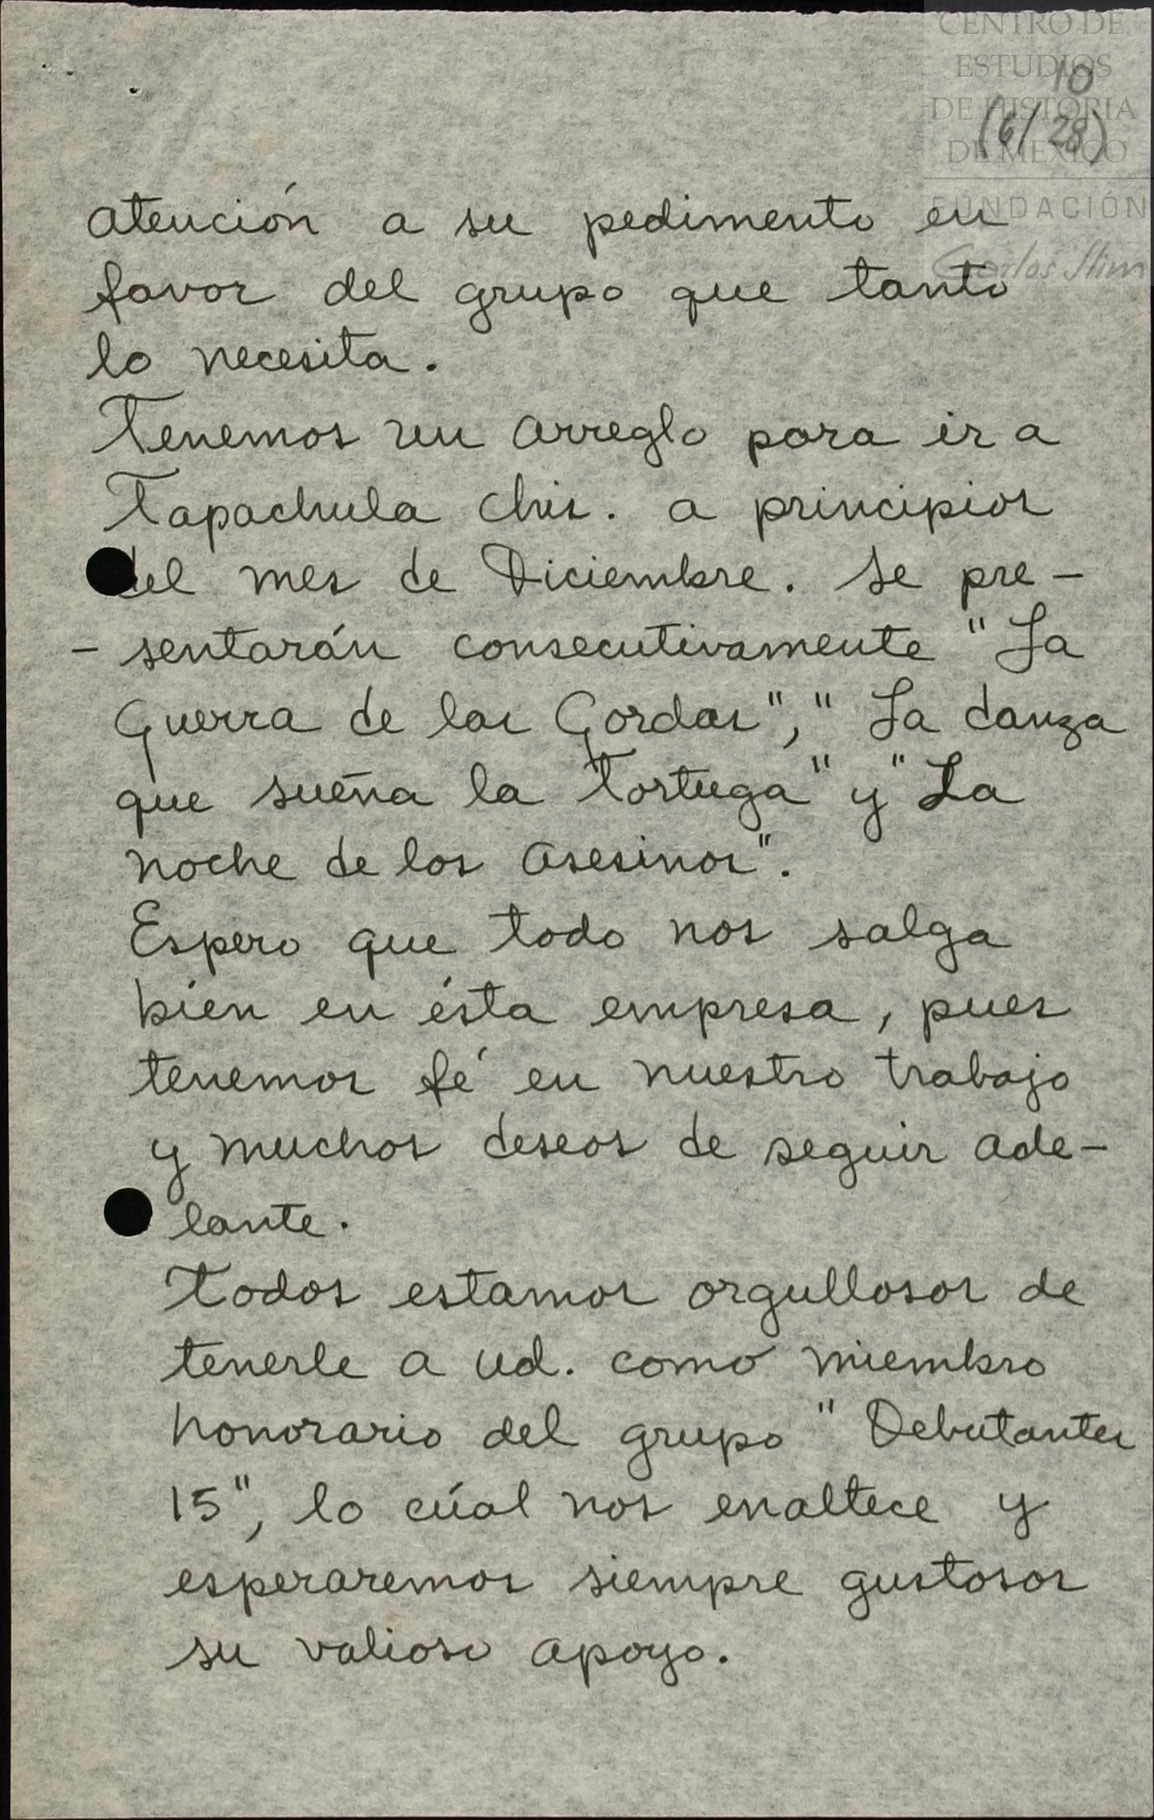 CENTRO DE
ESTUDIOS
DE HISTORIA
DE MÉXICO
FUNDACIÓN
Carlos Slim
10
(6/28)
atención a su pedimento en
favor del grupo que tanto
lo necesita.
Tenemos un arreglo para ir a
Tapachula Chis. a principios
del mes de Diciembre. Se pre-
- sentarán consecutivamente "La
Guerra de las Gordas", "La danza
que sueña la Tortuga" y "La
noche de los Asesinos".
Espero que todo nos salga
bién en ésta empresa, pues
tenemos fé en nuestro trabajo
y muchos deseos de seguir ade-
lante.
Todos estamos orgullosos de
tenerle a Ud. como miembro
honorario del grupo "Debutantes
15", lo cúal nos enaltece y
esperaremos siempre gustosos
su valioso apoyo.